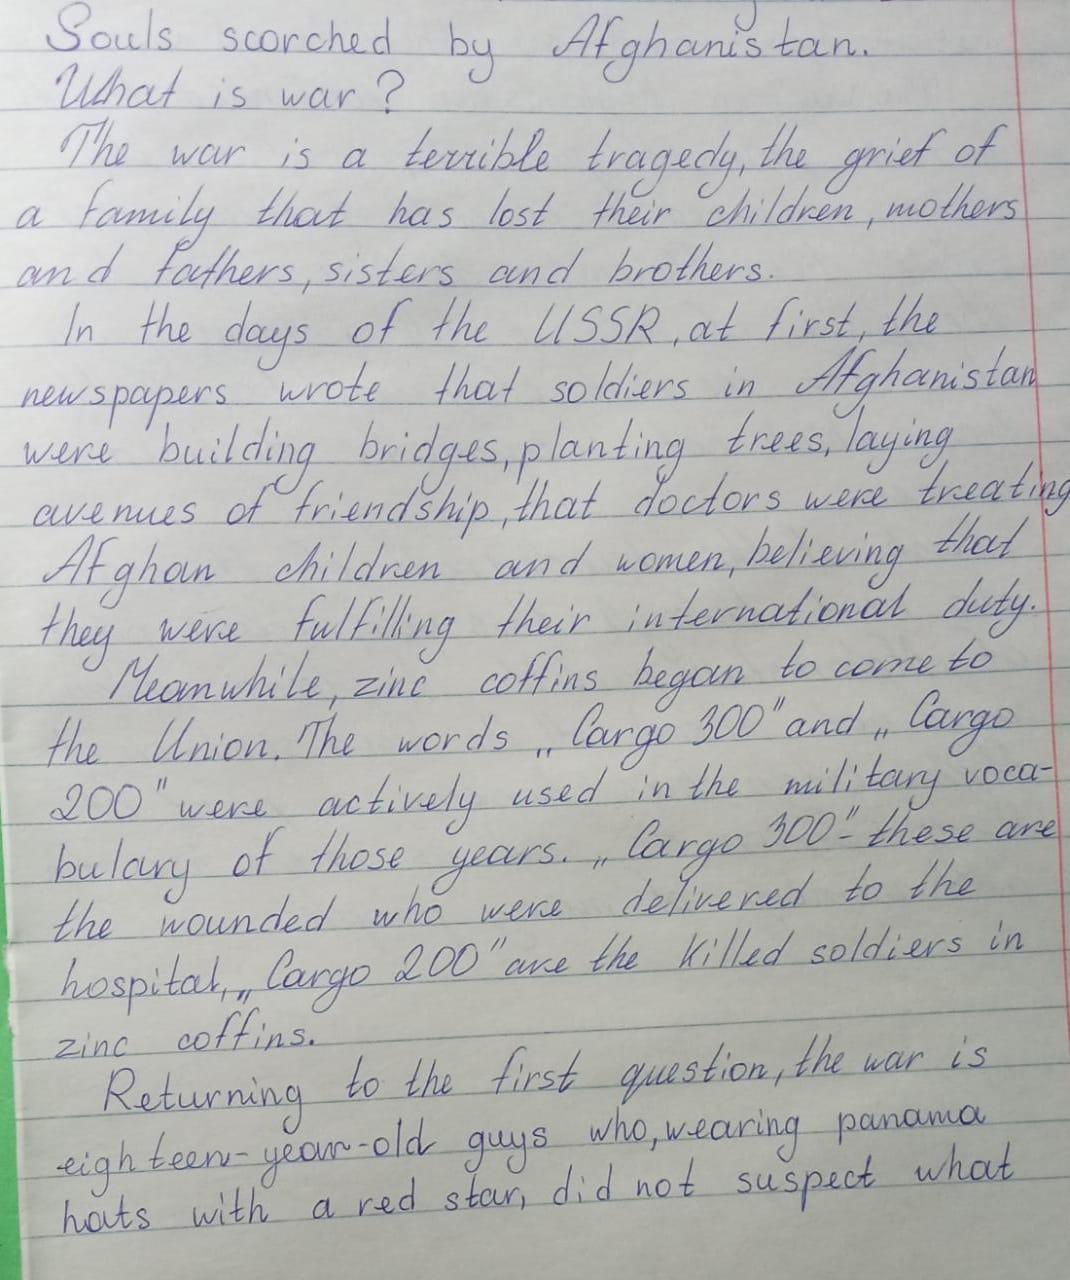 Souls scorched by Afghanistan.
What is war?
The war is a terrible tragedy, the grief of
a family that has lost their children, mothers
and fathers, sisters and brothers.
In the days of the USSR, at first, the
newspapers wrote that soldiers in Afghanistan
were building bridges, planting trees, laying
avenues of friendship, that doctors were treating
Afghan children and women, believing that
they were fulfilling their international duty.
Meanwhile, zinc coffins began to come to
the Union. The words „Cargo 300" and „Cargo
200" were actively used in the military voca-
bulary of those years. „Cargo 300" - these are
the wounded who were delivered to the
hospital, „Cargo 200" are the killed soldiers in
zinc coffins.
Returning to the first question, the war is
eighteen-year-old guys who, wearing panama
hats with a red star, did not suspect what